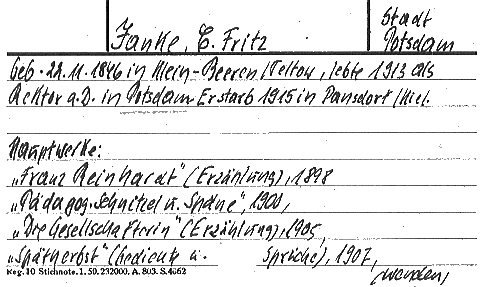 Janke, E. Fritz
Stadt
Potsdam
geb. 22.11.1846 in Klein-Beeren/Teltow, lebte 1913 als
Rektor a.D. in Potsdam Er starb 1915 in Pansdorf/Kiel.
Hauptwerke:
„Franz Reinhardt" (Erzählung), 1898
„Pädagog. Schnitzel u. Späne", 1900,
„Die Gesellschafterin" (Erzählung), 1905,
„Spätherbst" (Gedichte u. Sprüche), 1907,
Reg. 10 Stichnote. 1. 50. 232000. A. 803. S. 4662
(wenden)